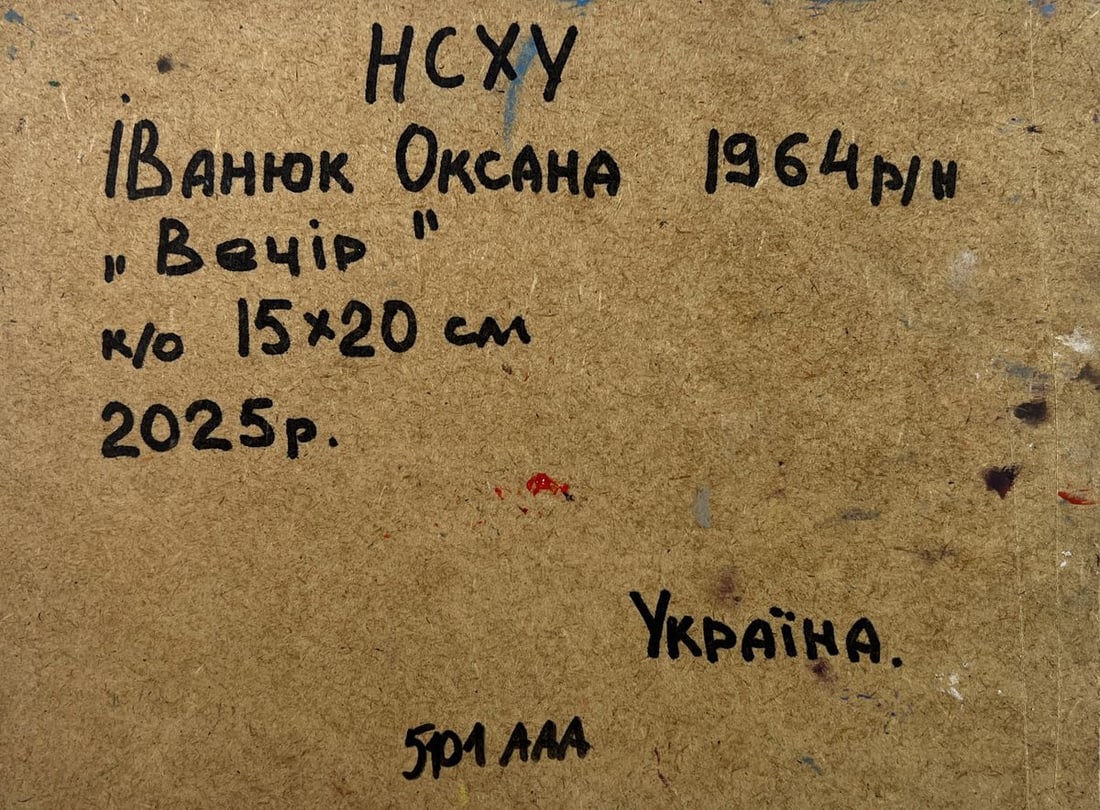 НСХУ
Іванюк Оксана 1964 р/н
„Вечір"
к/о 15×20 см
2025р.
Україна.
5р1 ААА